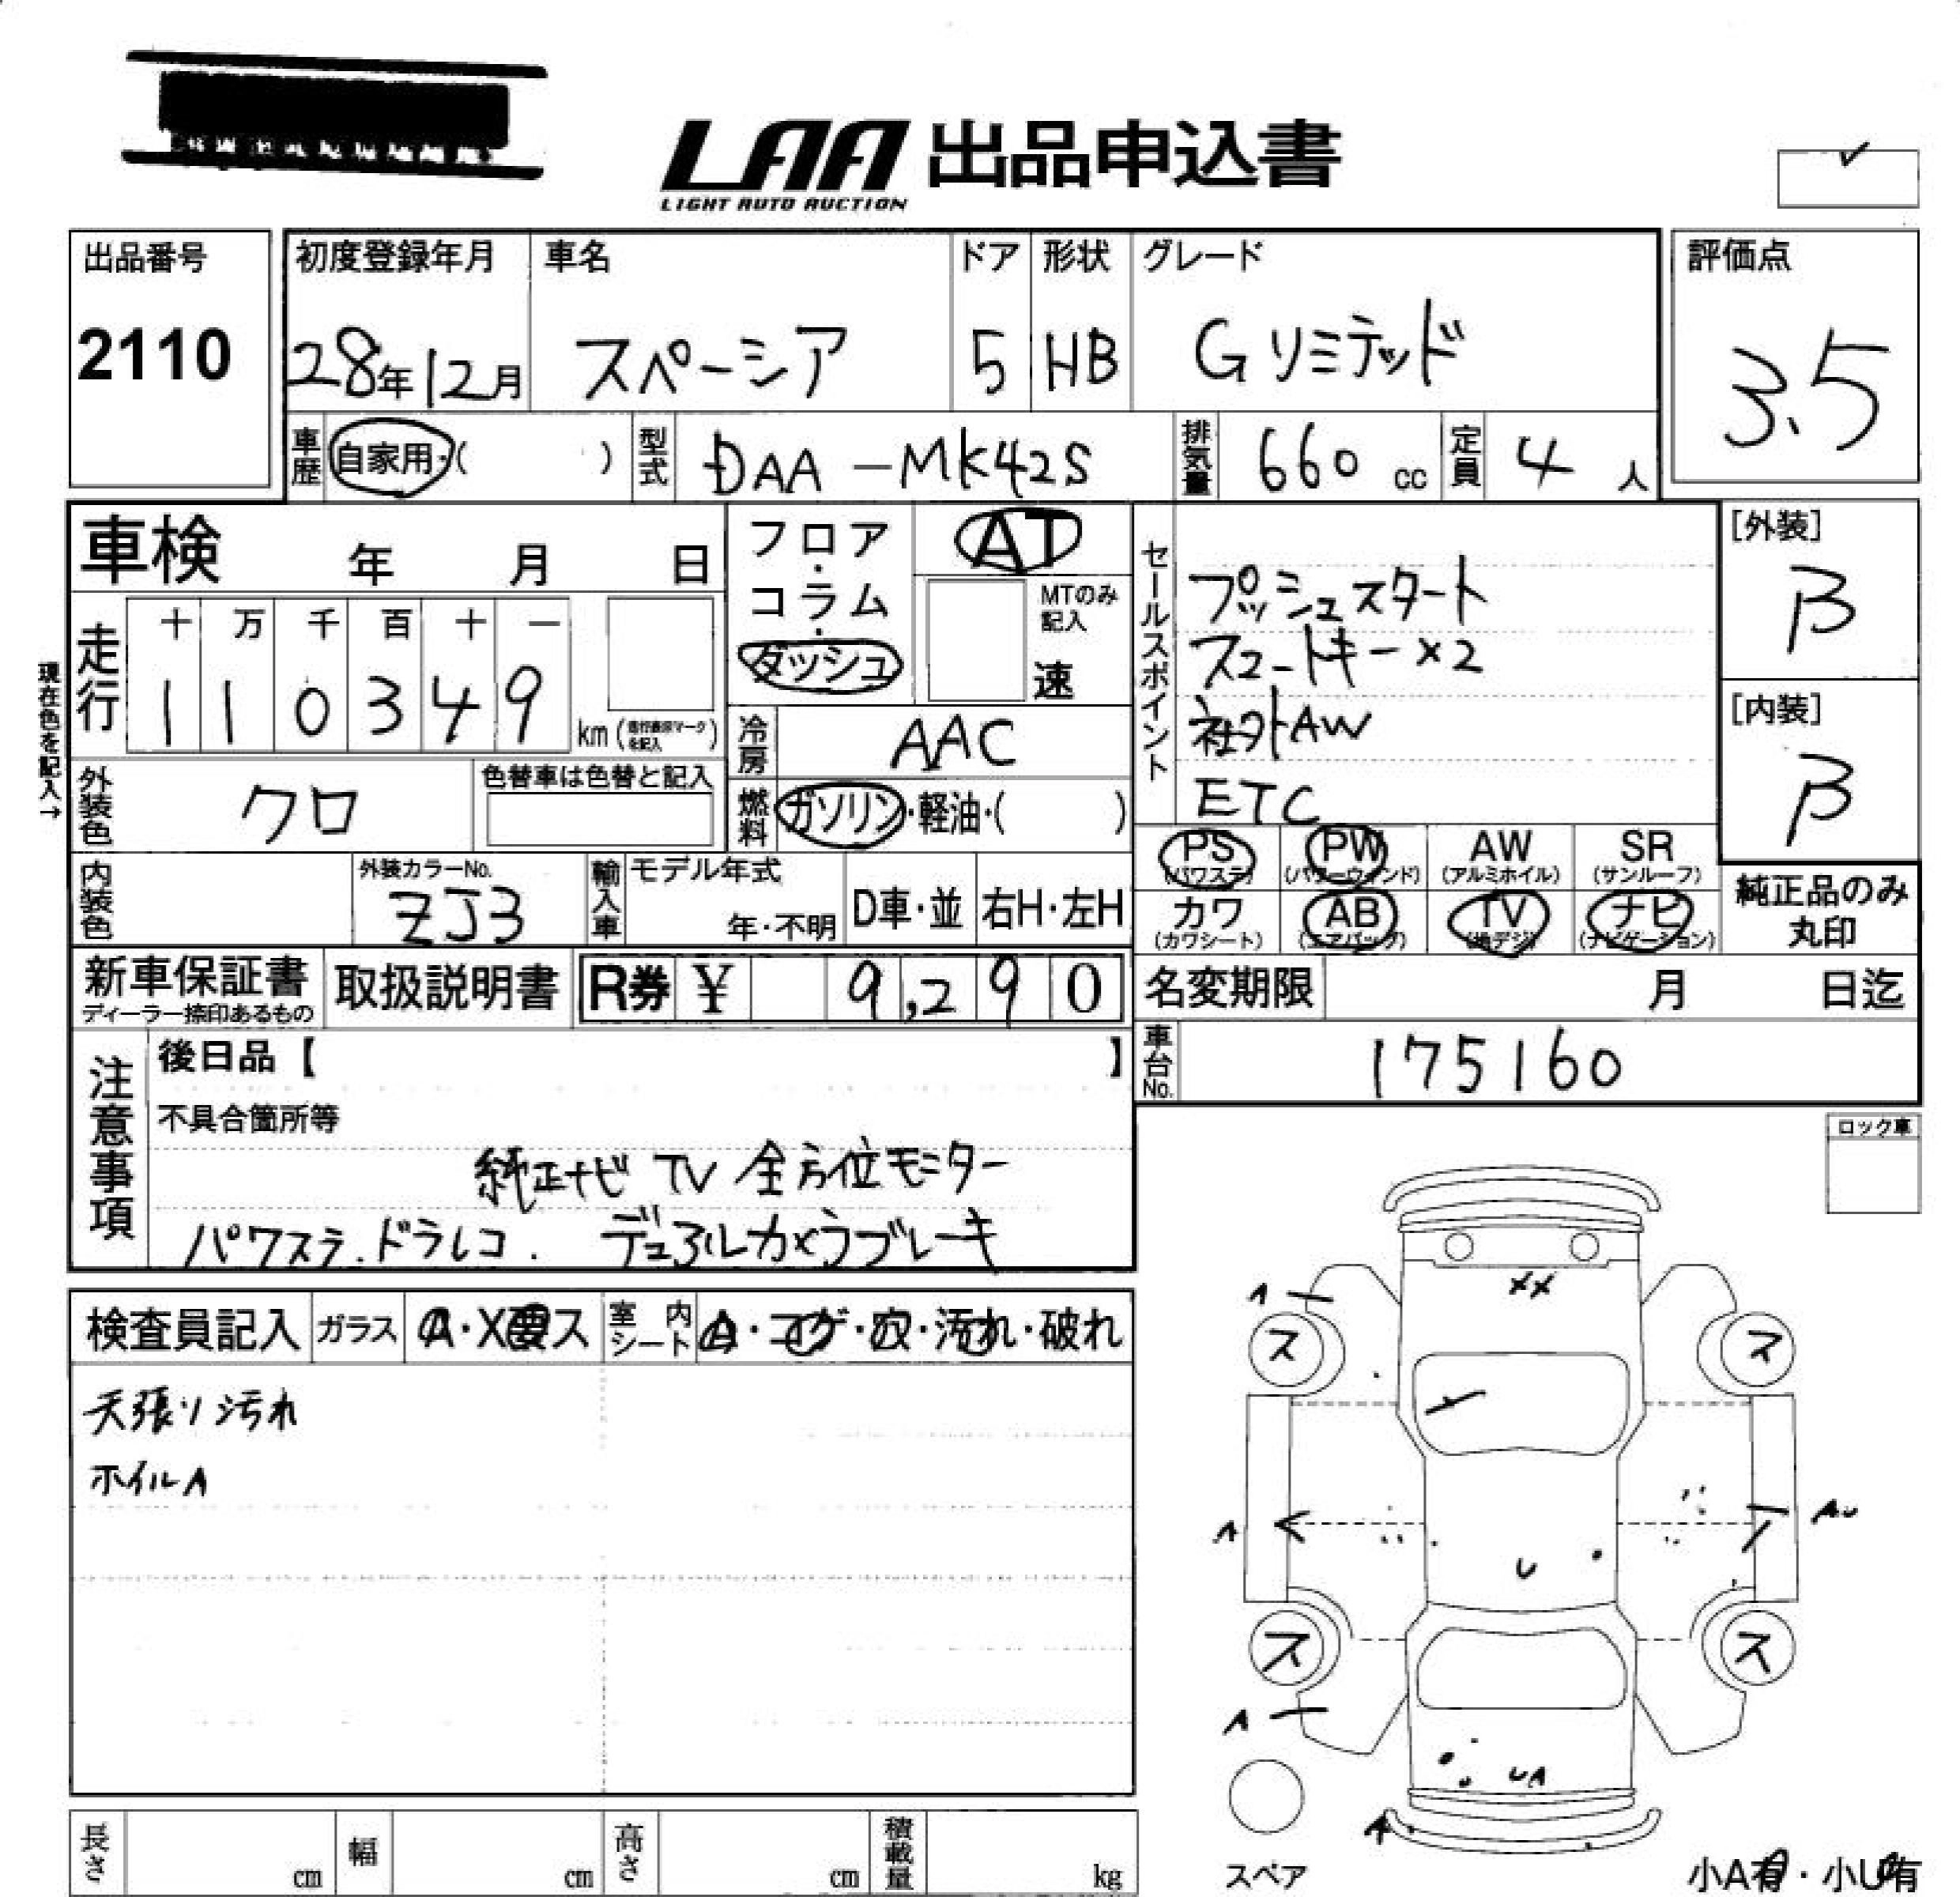 LAA 出品申込書
LIGHT AUTO AUCTION
出品番号
2110
初度登録年月
28年12月
車名
スペーシア
ドア
5
形状
HB
グレード
Gリミテッド
評価点
3.5
車歴 自家用・( )
型式 DAA-MK42S
排気量 660 cc
定員 4 人
車検 年 月 日
フロア・コラム・ダッシュ
AT
MTのみ記入
速
セールスポイント
プッシュスタート
スマートキー×2
社外AW
ETC
[外装]
B
[内装]
B
現在色を記入→
走行
十 万 千 百 十 一
1 1 0 3 4 9
km
冷房 AAC
外装色 クロ
色替車は色替と記入
燃料 ガソリン・軽油・( )
PS (パワステ)
PW (パワーウィンド)
AW (アルミホイル)
SR (サンルーフ)
カワ (カワシート)
AB (エアバッグ)
TV (地デジ)
ナビ (ナビゲーション)
純正品のみ
丸印
内装色
外装カラーNo.
ZJ3
輸入車
モデル年式
年・不明
D車・並
右H・左H
新車保証書
ディーラー捺印あるもの
取扱説明書
R券 ¥ 9,290
名変期限 月 日迄
車台No. 175160
注意事項
後日品【 】
不具合箇所等
純正ナビ TV 全方位モニター
パワステ.ドラレコ. デュアルカメラブレーキ
ロック車
検査員記入
ガラス
A・X要ス
室内シート
A・コゲ・穴・汚れ・破れ
天張り汚れ
ホイルA
XX
A
ス
ス
A
AU
U
ス
ス
A
UA
A
スペア
小A有・小U有
長さ cm
幅 cm
高さ cm
積載量 kg